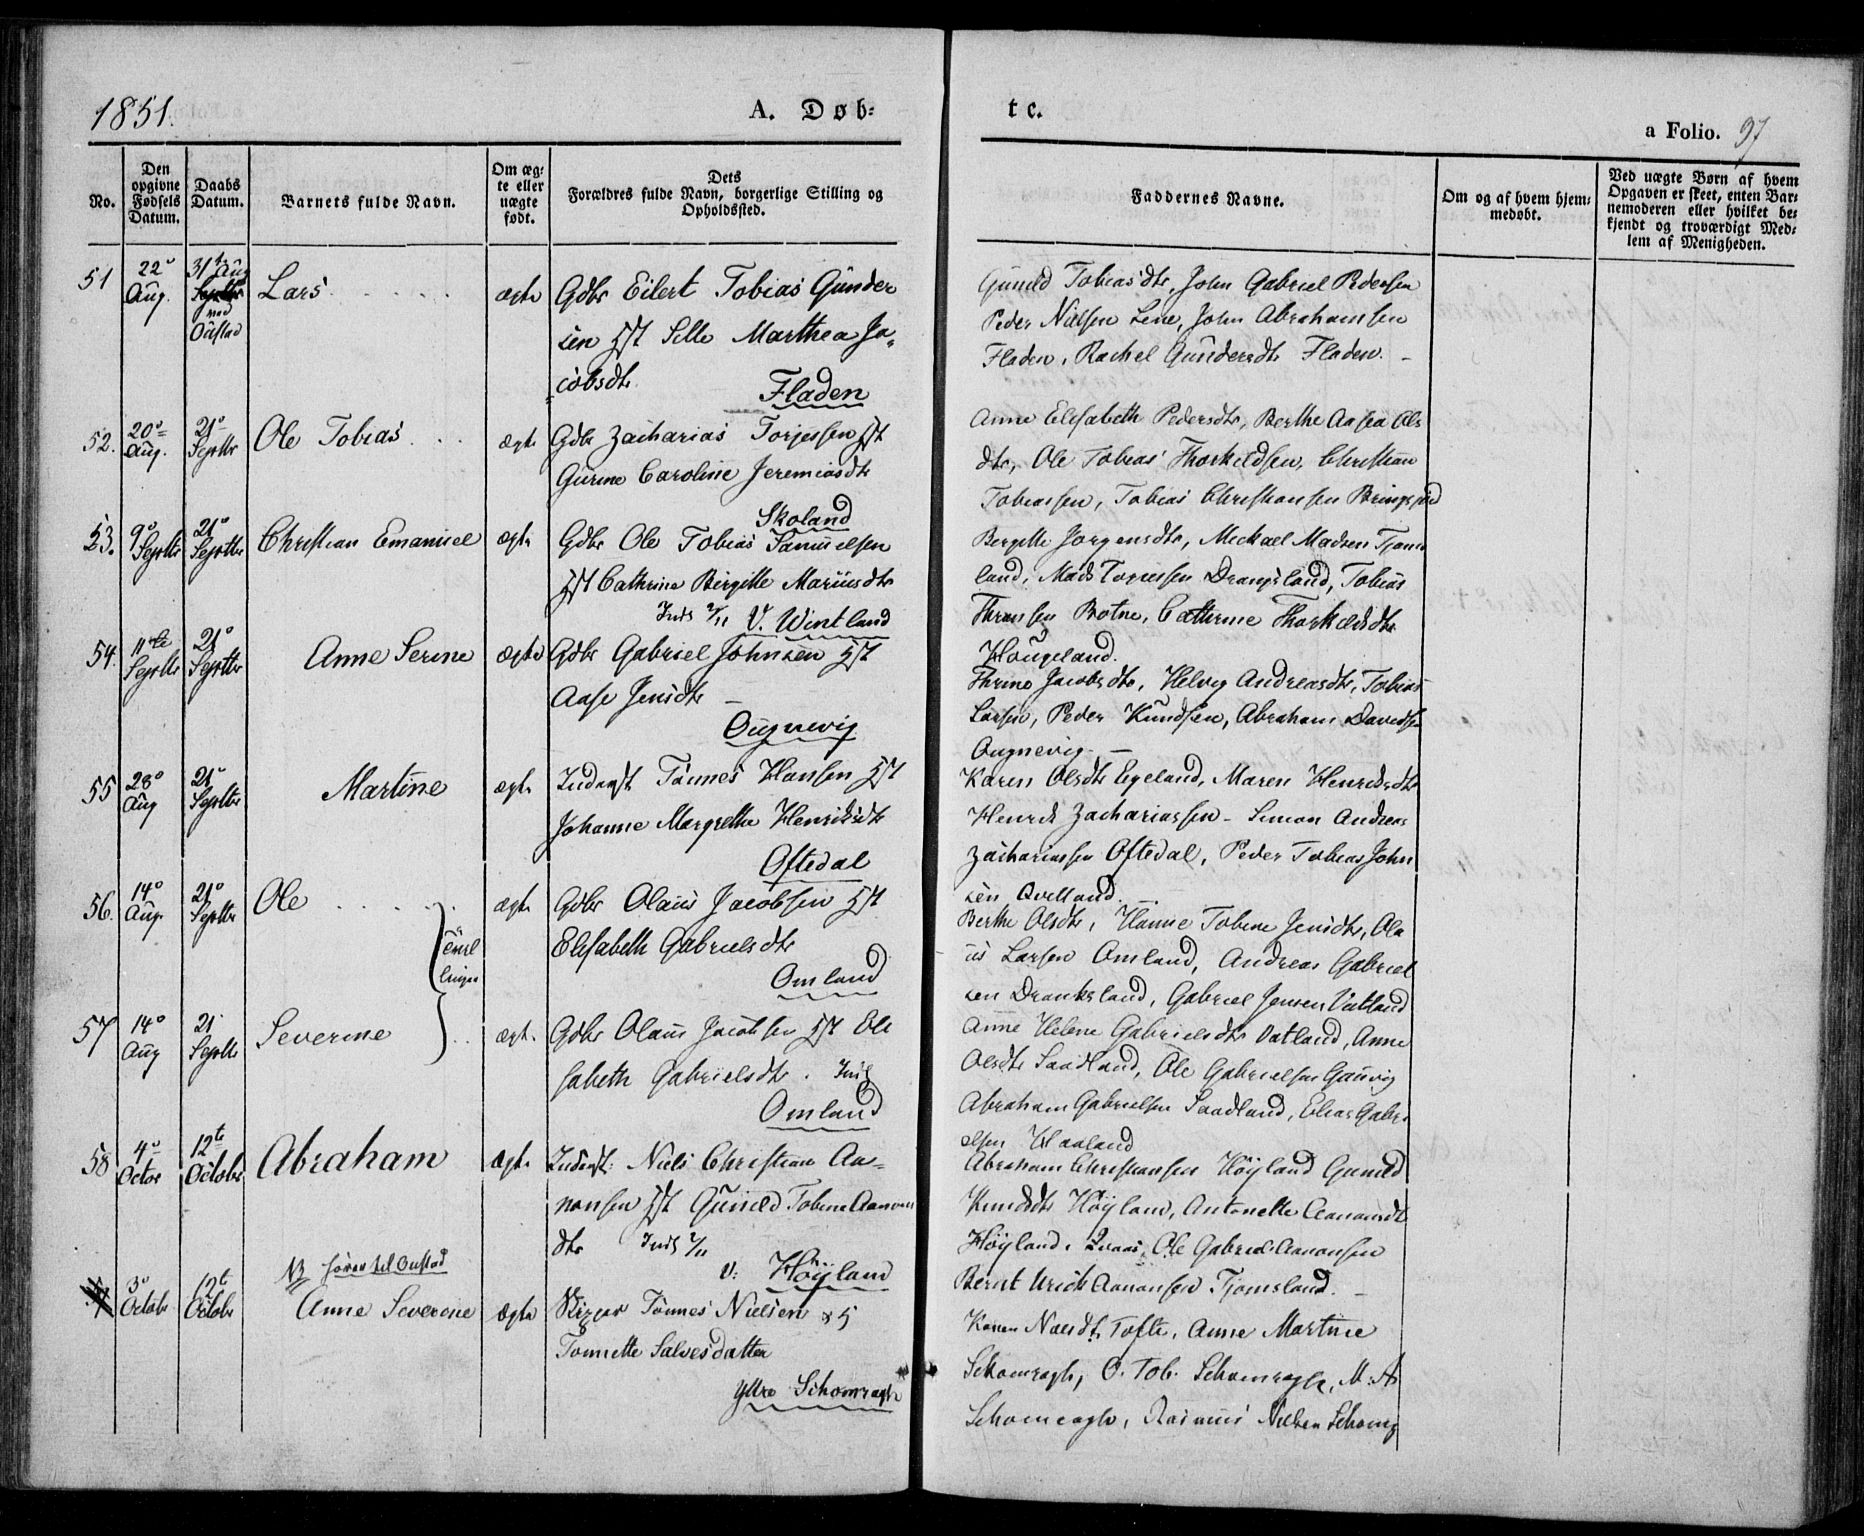 1851.
A. Døb-
tc.
a Folio. 97
No.
Den opgivne Fødsels Datum.
Daabs Datum.
Barnets fulde Navn.
Om ægte eller uægte født.
Dets Forældres fulde Navn, borgerlige Stilling og Opholdssted.
Faddernes Navne.
Om og af hvem hjemmedøbt.
Ved uægte Børn af hvem Opgaven er skeet, enten Barnemoderen eller hvilket bekjendt og troværdigt Medlem af Menigheden.
51 22° Aug. 31te Aug ved Oustad Lars ægte Gdbr Eilert Tobias Gunder
sen Hst Sille Marthea Ja-
cobsdtr.
Fladen
Gunild Tobiasdtr, John Gabriel Pedersen
Peder Nielsen Lene, John Abrahamsen
Fladen, Rachel Gundersdtr Fladen.
52. 20° Aug. 21° Septbr Ole Tobias ægte Gdbr Zacharias Torjessen Hst
Gurine Caroline Jeremiasdtr
Skoland
Anne Elisabeth Pedersdtr, Berthe Aasea Ols
dtr, Ole Tobias Thorkildsen, Christian
Tobiassen, Tobias Christiansen Bringsjord
53. 9° Septbr 21° Septbr Christian Emanuel ægte Gdbr Ole Tobias Samuelsen
Hst Cathrine Birgitte Mariusdtr
Inds 2/11 V. Wintland
Bergitte Jørgensdtr, Mickael Madsen Tjoms
land, Mads Tørressen Drangsland, Tobias
Botne, Cathrine Thorkildsdtr
Hougeland.
54. 11te Septbr 21° Septbr Anne Serine ægte Gdbr Gabriel Johnsen Hst
Aase Jensdtr
Ougnevig
Thrine Jacobsdtr, Helvig Andreasdtr, Tobias
Larsen, Peder Knudsen, Abraham Davidsen
Ougnevig.
55 28° Aug 21° Septbr Martine ægte Inderst Tønnes Hansen Hst
Johanne Margrethe Henriksdtr
Oftedal
Karen Olsdtr Egeland, Maren Henriksdtr
Henrik Zachariassen - Simon Andreas
Zachariassen Oftedal, Peder Tobias John
sen Qvelland.
56. 14° Aug. 21° Septbr Ole ægte Gdbr Olaus Jacobsen Hst
Elisabeth Gabrielsdtr
Omland
Tvil
linger
Berthe Olsdtr, Hanne Tobine Jensdtr, Ola
us Larsen Omland, Andreas Gabriel
sen Dranksland, Gabriel Jensen Vatland
57 14° Aug 21 Septbr Severine ægte. Gdbr Olaus Jacobsen Hst Eli
sabeth Gabrielsdtr. Inds
Omland
Anne Helene Gabrielsdtr Vatland, Anne
Olsdtr Saadland, Ole Gabrielsen Gauvig
Abraham Gabrielsen Saadland, Elias Gabri
elsen Haaland
58 4° Octbr 12te Octobr Abraham ægte Inderst: Niels Christian Aa-
nonsen Hst Gunild Tobine Aanons
dtr Inds 2/11
V: Höyland
Abraham Christiansen Höyland Gunild
Knudsdtr Höyland, Antonette Aanonsdtr
Höyland, Ole Gabriel Aanonsen
Bernt Urich Aanonsen Tjomsland.
NB hører til Oustad
3° Octobr 12te Octobr Anne Severine ægte Skipper Tønnes Nielsen &
Tonnette Salvesdatter
Ytre Schomragh
Karen Nielsdtr Tofte, Anne Martine
Schomragh, O. Tob. Schomragh, M. A
Schomragh, Rasmus Nielsen Schomr